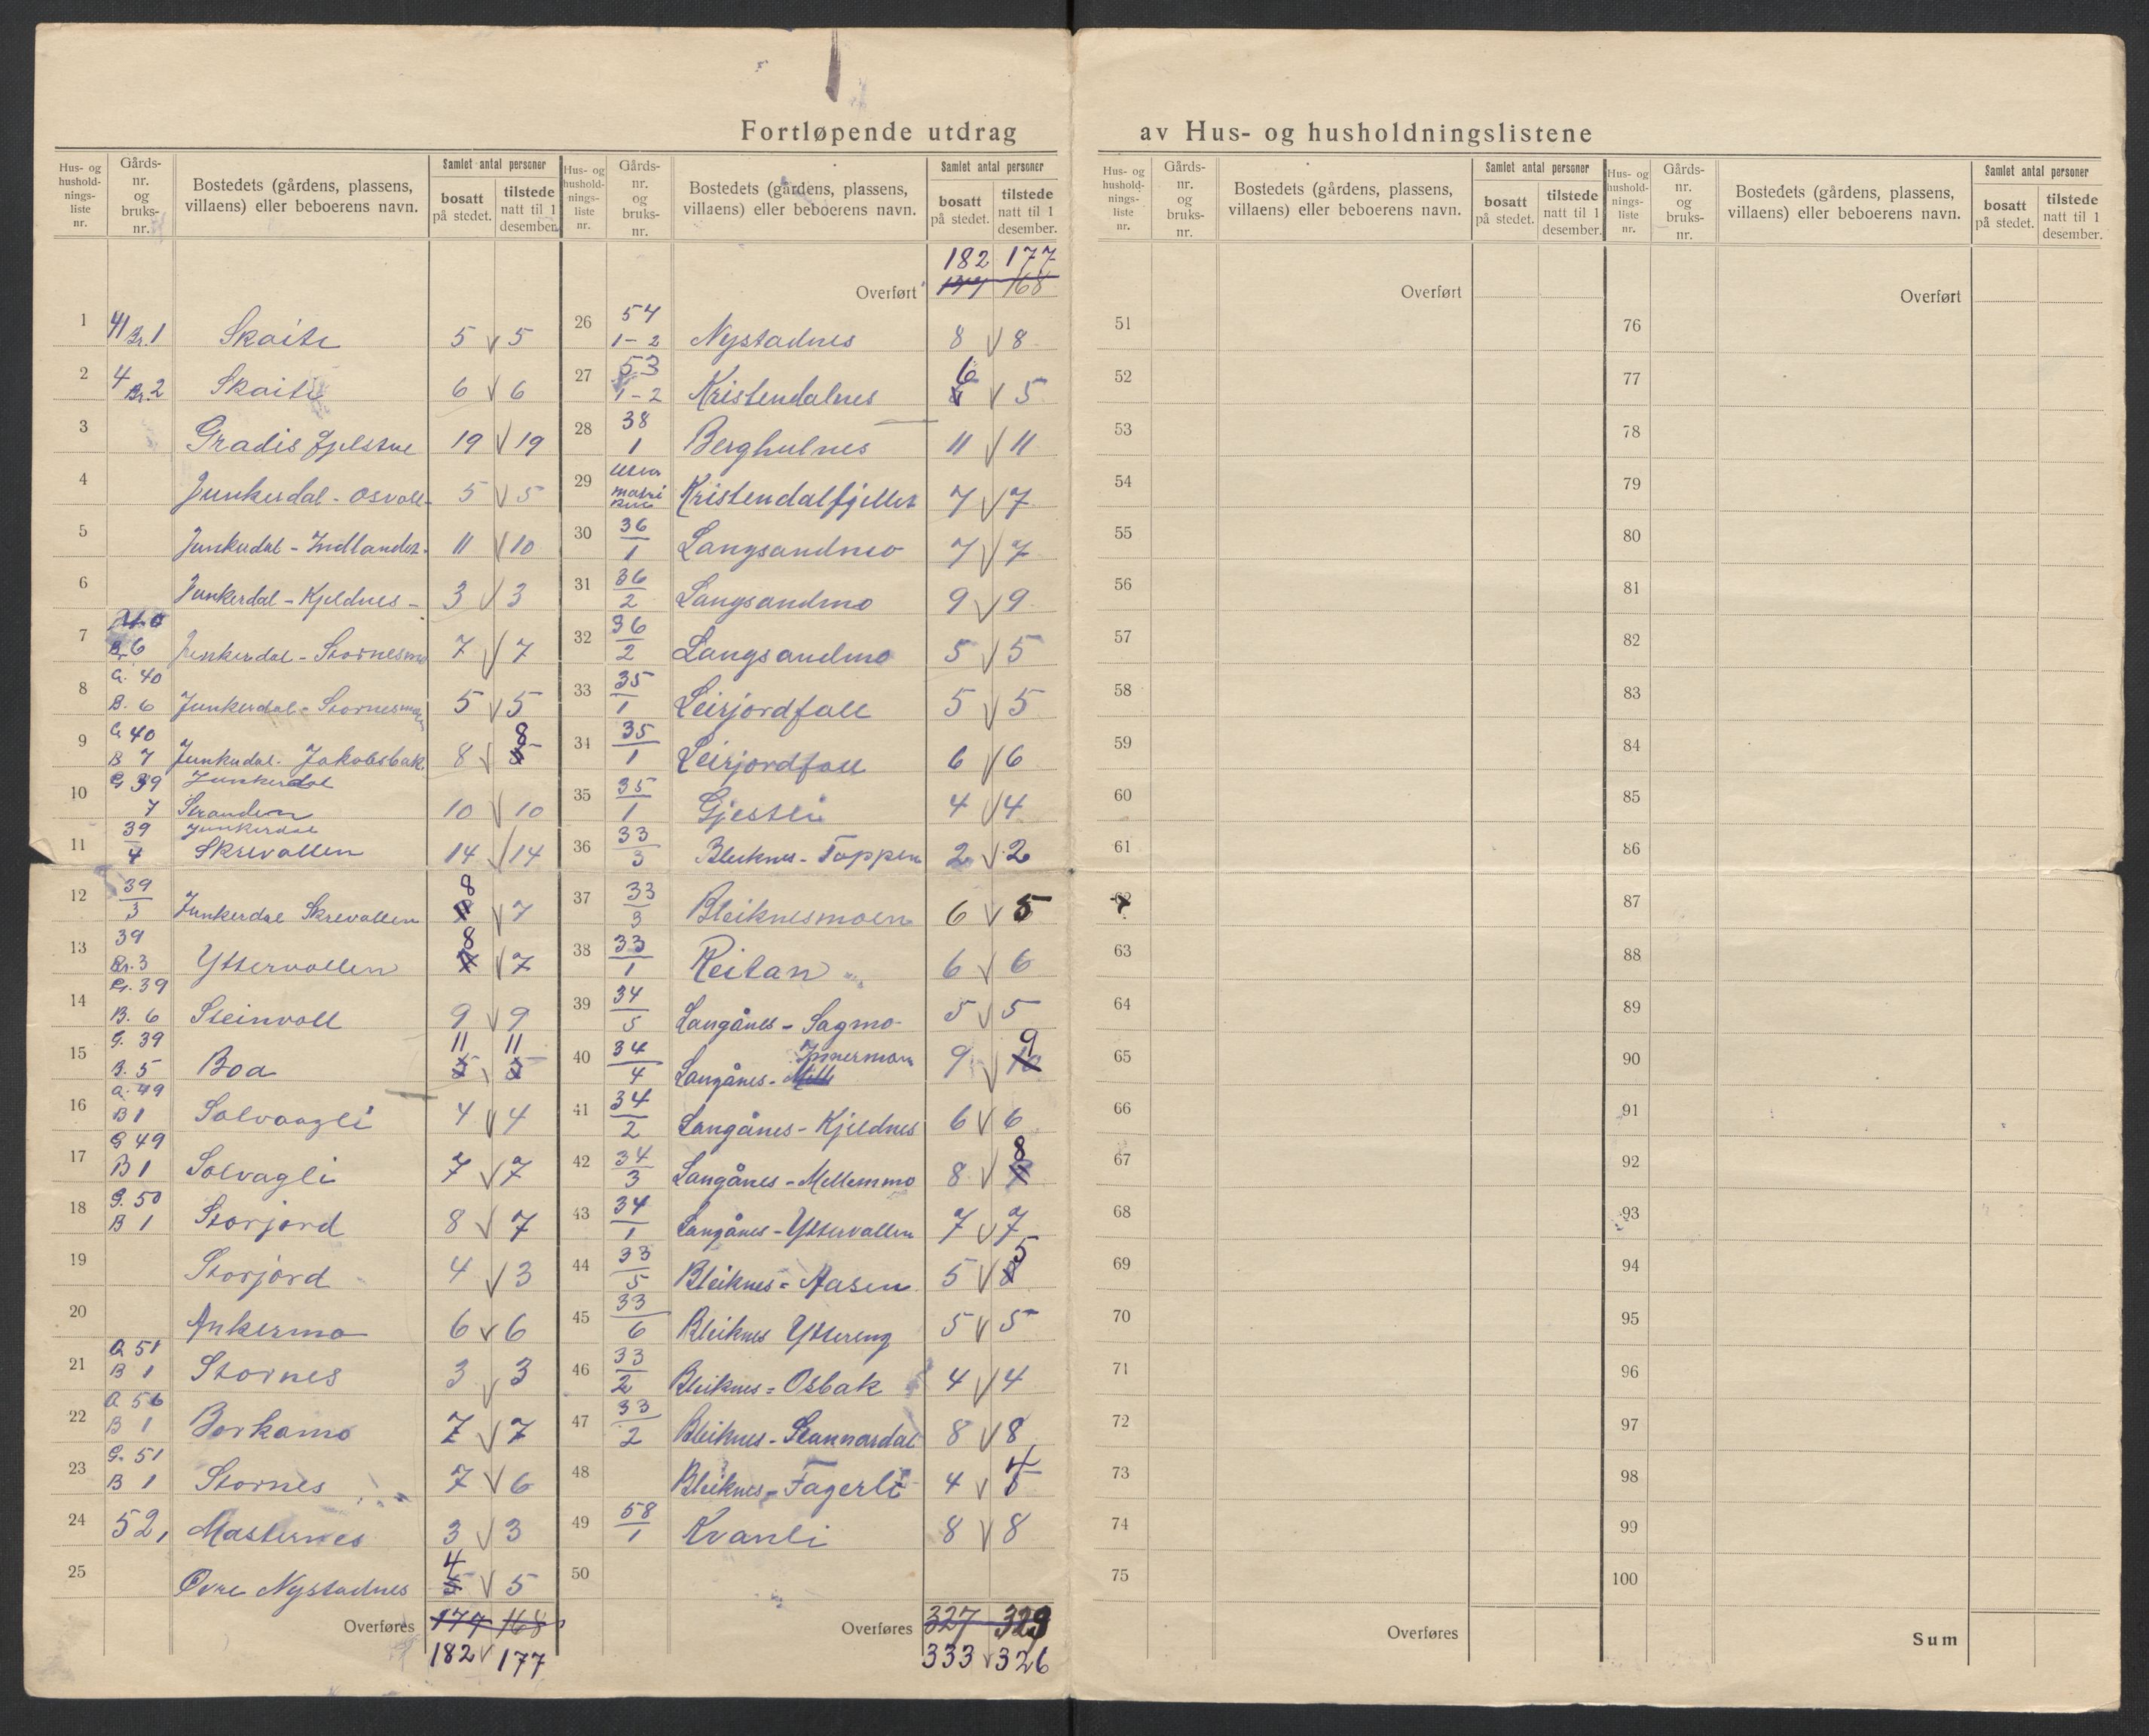 Fortløpende utdrag av Hus- og husholdningslistene
Hus- og hushold- nings- liste nr. Gårds- nr. og bruks- nr. Bostedets (gårdens, plassens, villaens) eller beboerens navn. Samlet antal personer bosatt på stedet. tilstede natt til 1 desember.
1 41 Br. 1 Skaite 5 V 5
2 4 Br. 2 Skaite 6 V 6
3 Gradis fjelstue 19 V 19
4 Junkerdal - Osvoll 5 V 5
5 Junkerdal - Indlandet 11 V 10
6 Junkerdal - Kjeldnes - 3 V 3
7 40 Br 6 Junkerdal - Stornesmo 7 V 7
8 G. 40 B. 6 Junkerdal - Stornesmoen 5 V 5
9 G 40 B 7 Junkerdal - Jakobsbak. 8 V 8
10 G 39 7 Junkerdal Stranden 10 V 10
11 39 4 Junkerdal Skrevollen 14 V 14
12 39 3 Junkerdal Skrevollen 8 V 7
13 39 Br. 3 Yttervollen 8 V 7
14 G. 39 B. 6 Steinvoll 9 V 9
15 G. 39 B. 5 Boa 11 11
16 G. 49 B 1 Solvaagli 4 V 4
17 G 49 B 1 Solvagli 7 V 7
18 G. 50 B 1 Storjord 8 V 7
19 Storjord 4 V 3
20 Ankermo 6 V 6
21 G 51 B 1 Stornes 3 V 3
22 G 56 B 1 Borkamo 7 V 7
23 G. 51 B 1 Stornes 7 V 6
24 52, Masternes 3 V 3
25 Øvre Nystadnes 4 V 5
Overføres 177 168
182 V 177
Hus- og hushold- nings- liste nr. Gårds- nr. og bruks- nr. Bostedets (gårdens, plassens, villaens) eller beboerens navn. Samlet antal personer bosatt på stedet. tilstede natt til 1 desember.
182 177
Overført 177 168
26 54 1-2 Nystadnes 8 V 8
27 53 1-2 Kristendalnes 6 V 5
28 38 1 Berghulnes 11 V 11
29 uten matri kul Kristendalfjellet 7 V 7
30 36 1 Langsandmo 7 V 7
31 36 2 Langsandmo 9 V 9
32 36 2 Langsandmo 5 V 5
33 35 1 Leirjordfall 5 V 5
34 35 1 Leirjordfall 6 V 6
35 35 1 Gjestli 4 V 4
36 33 3 Bleiknes - Toppen 2 V 2
37 33 3 Bleiknesmoen 6 V 5
38 33 1 Reitan 6 V 6
39 34 5 Langånes - Sagmo 5 V 5
40 34 4 Langånes - Innermoen 9 V 9
41 34 2 Langånes - Kjeldnes 6 V 6
42 34 3 Langånes - Mellemmo 8 V 8
43 34 1 Langånes - Yttervollen 7 V 7
44 33 5 Bleiknes = Aasen 5 V 5
45 33 6 Bleiknes Yttereng 5 V 5
46 33 2 Bleiknes = Osbak 4 V 4
47 33 2 Bleiknes - Stannardal 8 V 8
48 Bleiknes - Fagerli 4 V 4
49 58 1 Kvanli 8 V 8
50
Overføres 327 329
333 V 326
Hus- og hushold- nings- liste nr. Gårds- nr. og bruks- nr. Bostedets (gårdens, plassens, villaens) eller beboerens navn. Samlet antal personer bosatt på stedet. tilstede natt til 1 desember.
Overført
51
52
53
54
55
56
57
58
59
60
61
62
63
64
65
66
67
68
69
70
71
72
73
74
75
Overføres
Hus- og hushold- nings- liste nr. Gårds- nr. og bruks- nr. Bostedets (gårdens, plassens, villaens) eller beboerens navn. Samlet antal personer bosatt på stedet. tilstede natt til 1 desember.
Overført
76
77
78
79
80
81
82
83
84
85
86
87
88
89
90
91
92
93
94
95
96
97
98
99
100
Sum